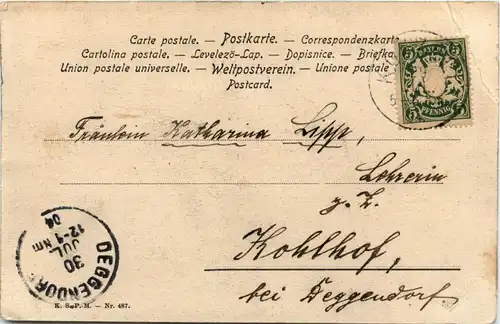 Carte postale. — Postkarte. — Correspondenzkarte
Cartolina postale. — Levelező-Lap. — Dopisnice. — Briefka
Union postale universelle. — Weltpostverein. — Unione postale
Postcard.
BAYERN
5 5
PFENNIG
5 5
Fräulein Katharina Lipp,
Lehrerin
z. Z.
Kohlhof,
bei Deggendorf.
DEGGENDORF
30
JUL
12-1 Nm
04
K. S. P.-M. — Nr. 487.